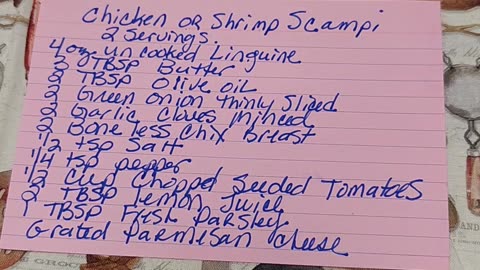 Chicken or Shrimp Scampi
2 Servings
4 oz un cooked Linguine
3 TBSP Butter
2 TBSP Olive oil
2 Green onion thinly sliced
2 Garlic Cloves minced
2 Boneless Chix Breast
1/2 tsp Salt
1/4 tsp pepper
1/2 Cup Chopped Seeded Tomatoes
2 TBSP Lemon Juice
1 TBSP Fresh Parsley
Grated Parmesan cheese